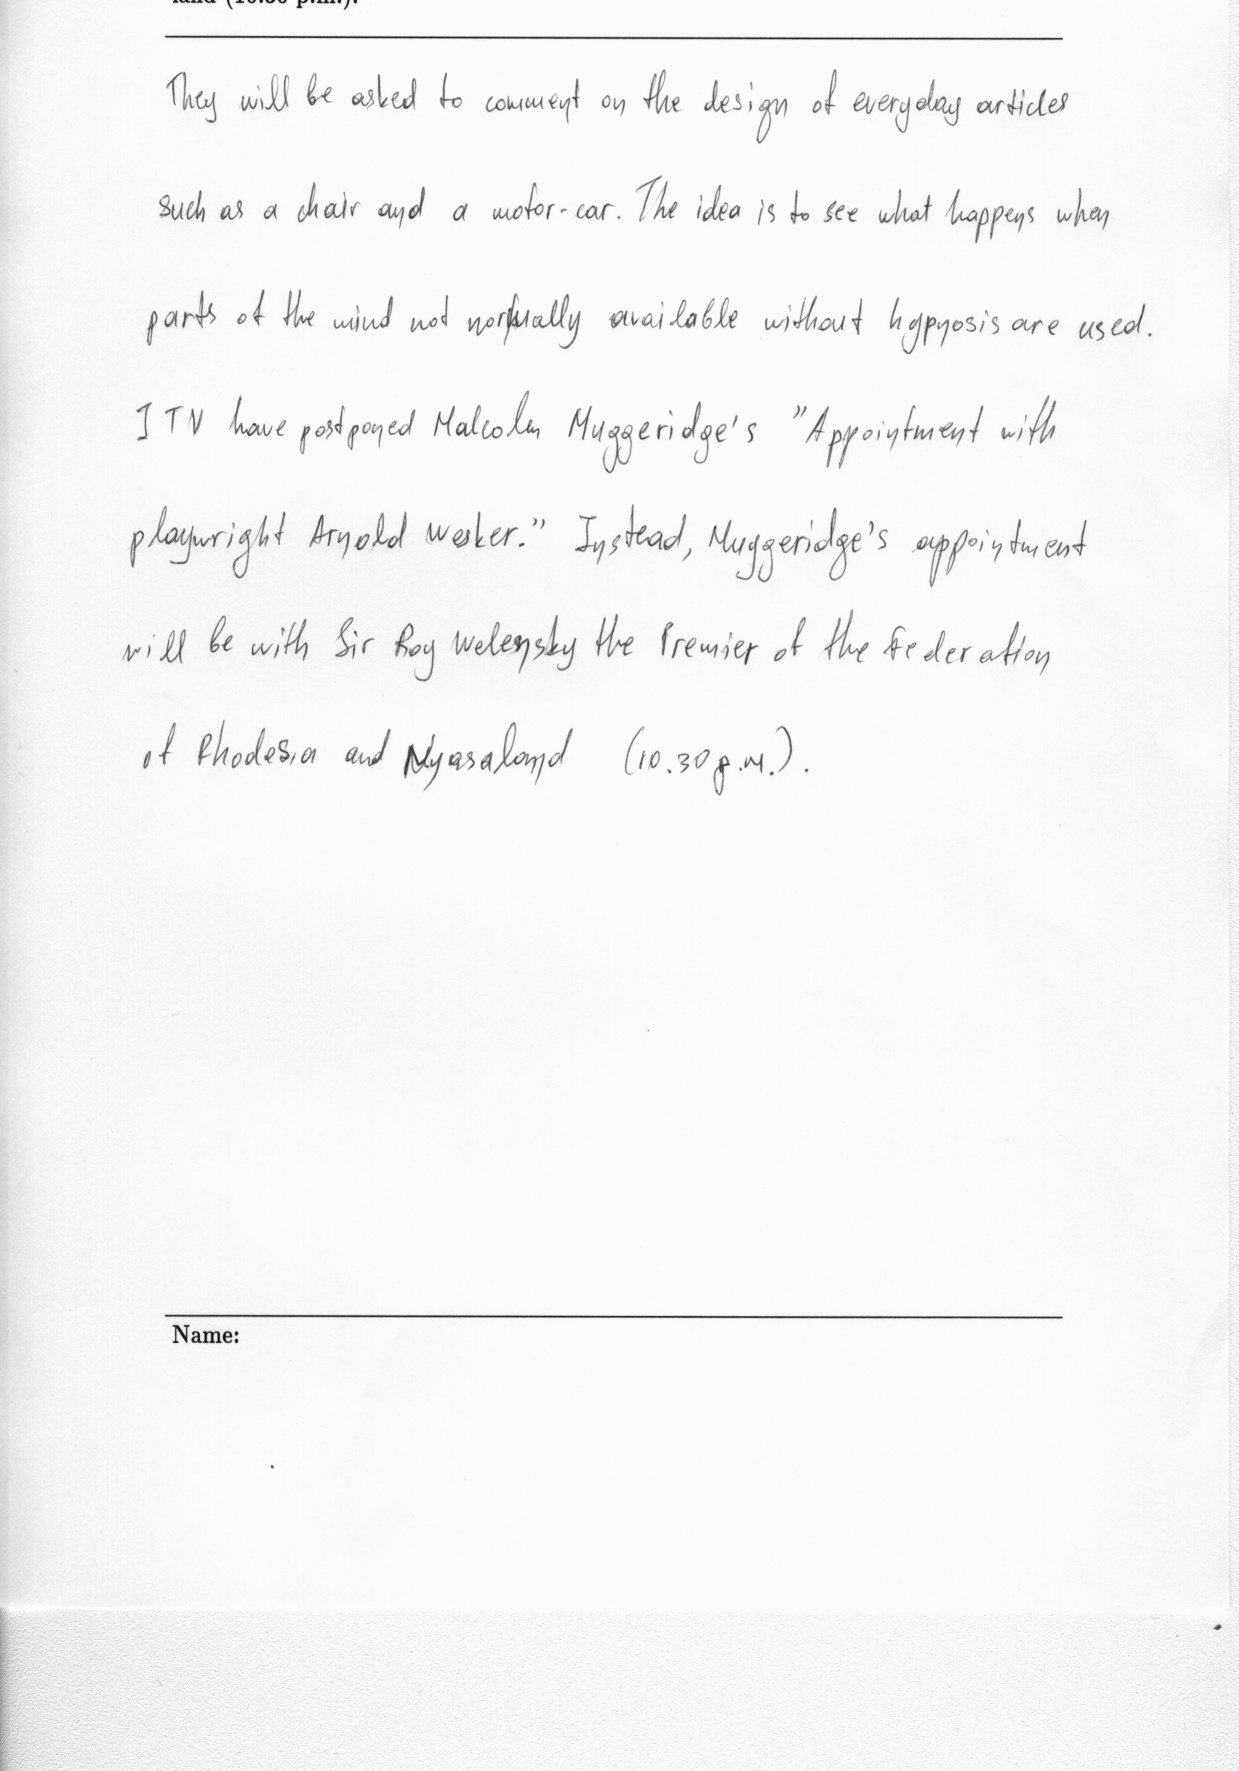 land (10.30 p.m.).
They will be asked to comment on the design of everyday articles
such as a chair and a motor-car. The idea is to see what happens when
parts of the mind not normally available without hypnosis are used.
ITV have postponed Malcolm Muggeridge's "Appointment with
playwright Arnold Wesker." Instead, Muggeridge's appointment
will be with Sir Roy Welensky the Premier of the Federation
of Rhodesia and Nyasaland (10.30 p.m.).
Name: